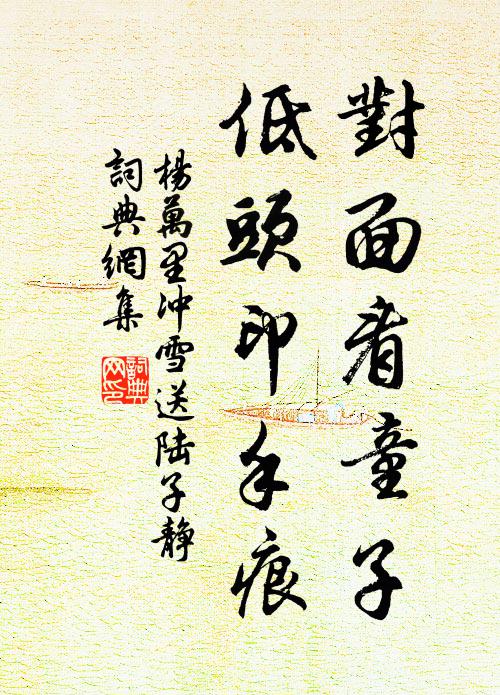 對面看童子
低頭印手痕
楊萬里沖雪送陆子静
詞典網集
詞典網印